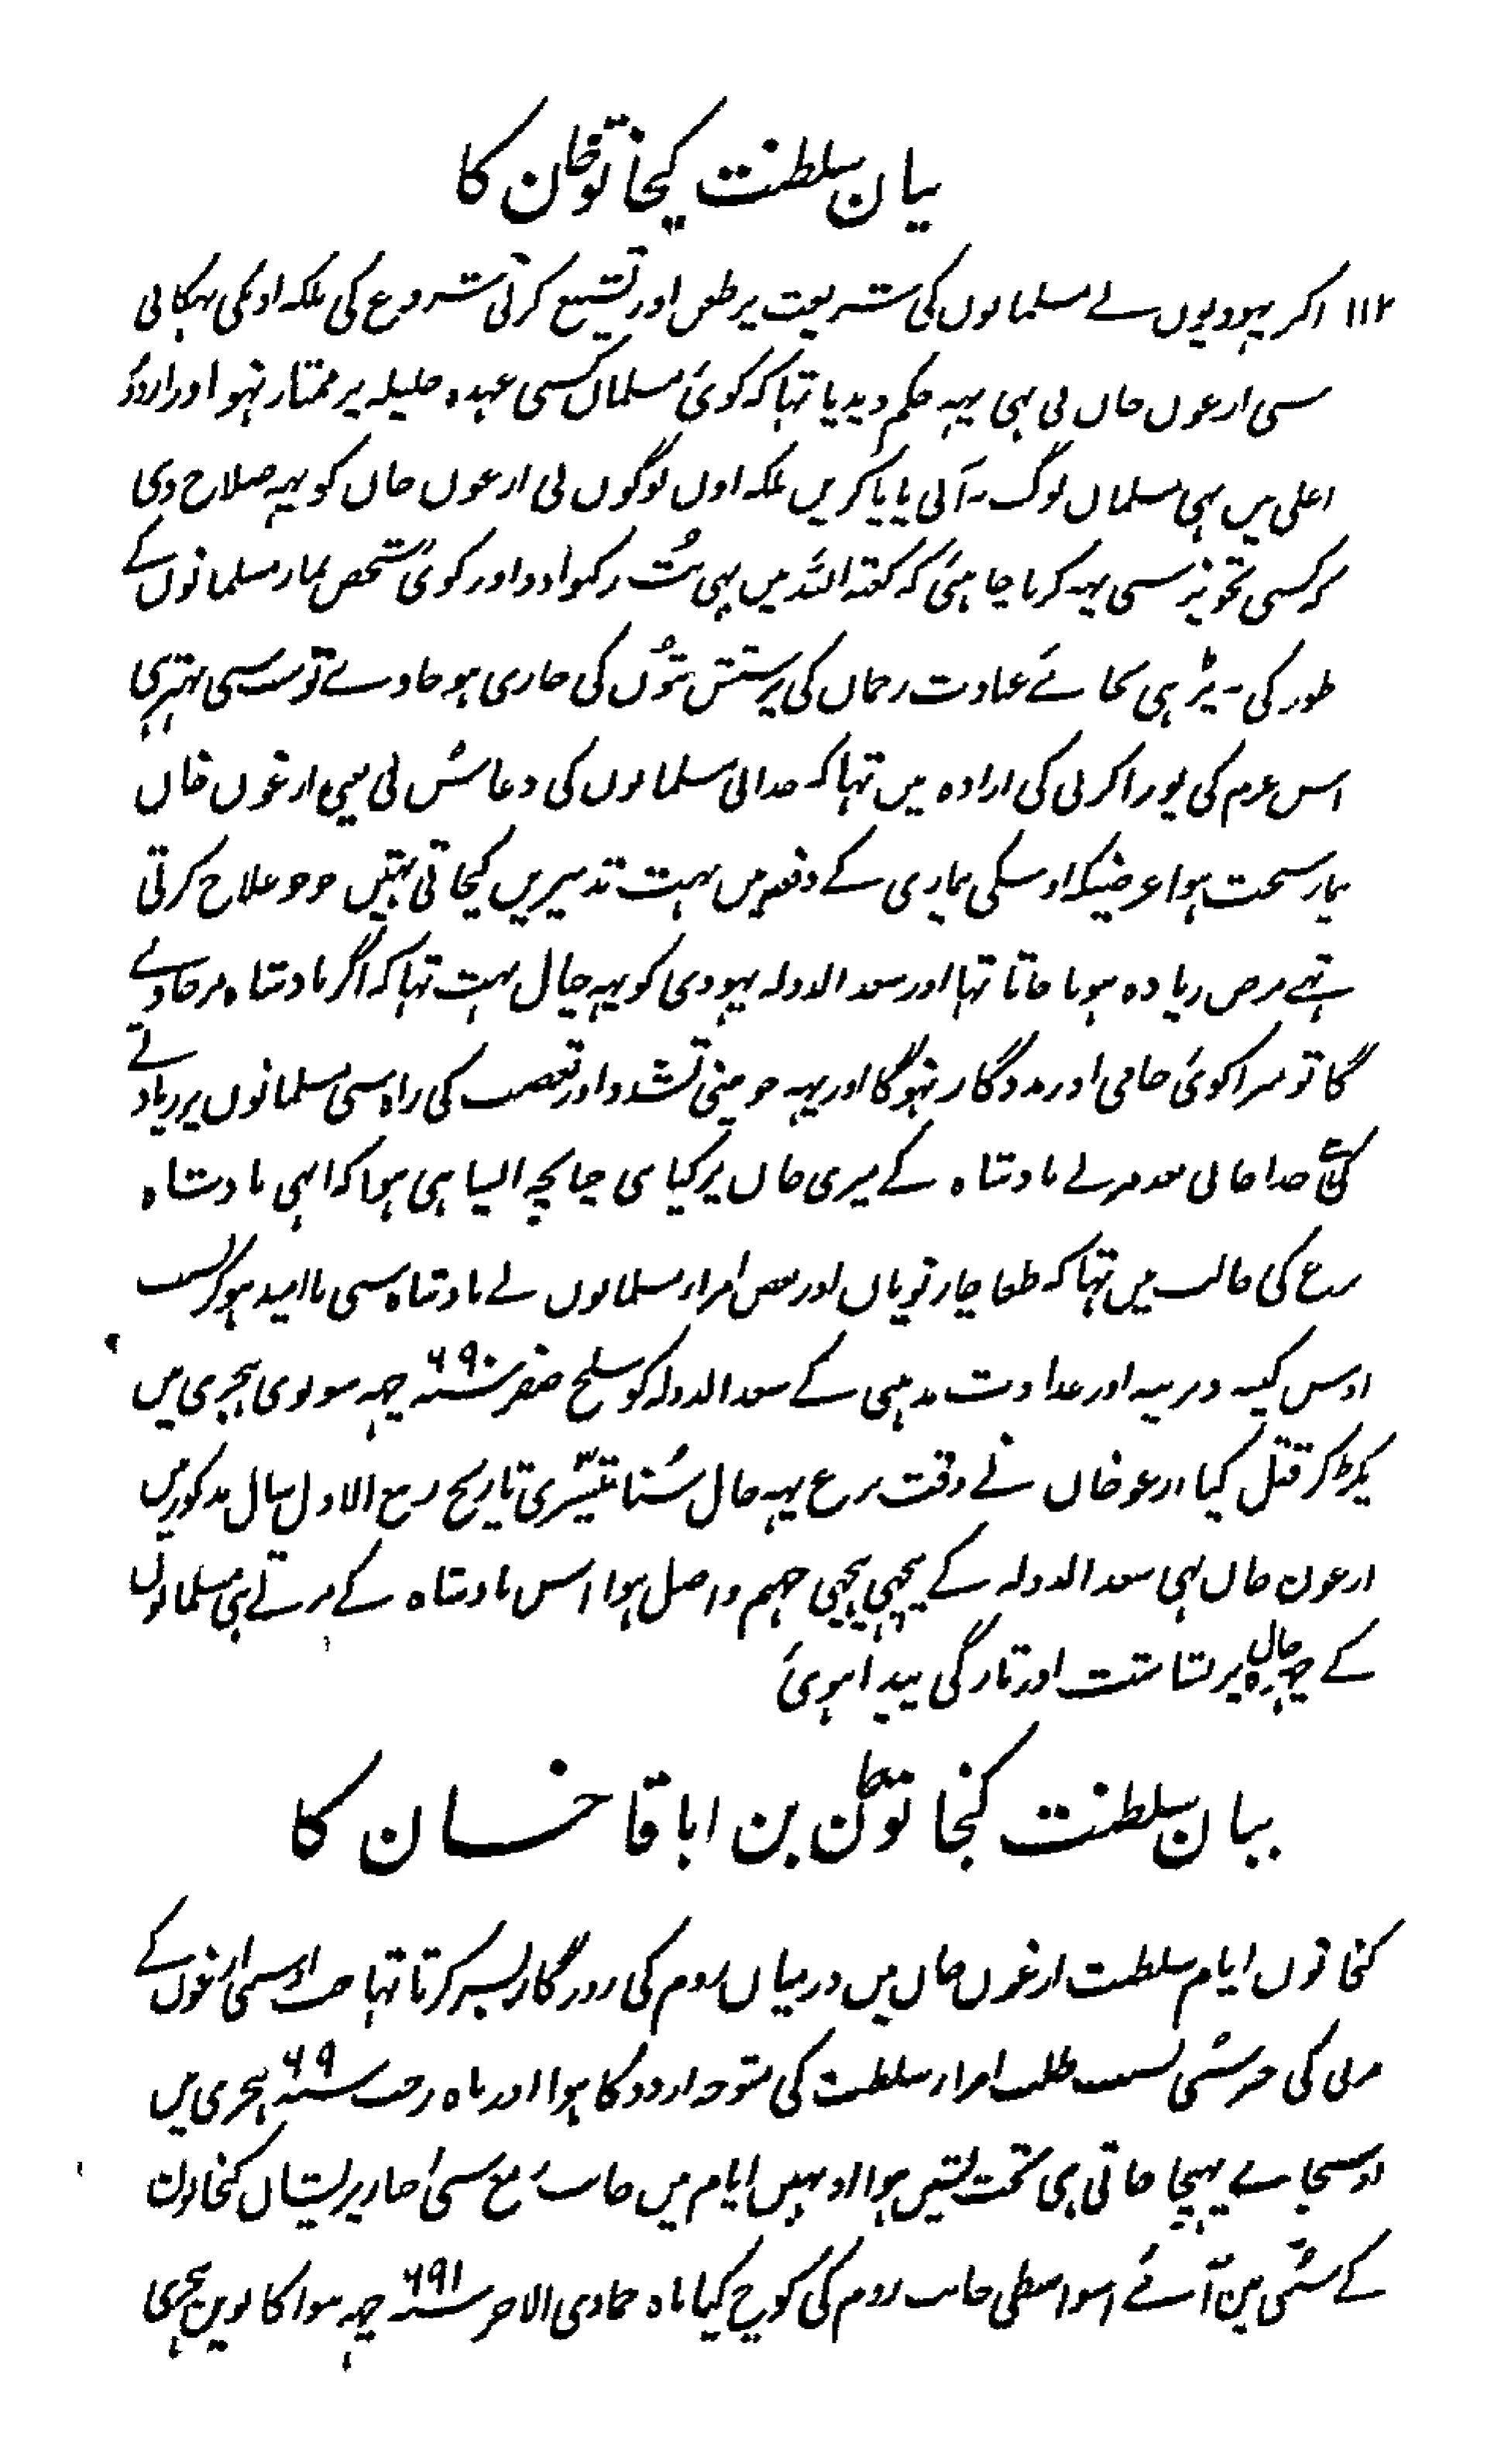 بیان سلطنت کیخاتوخان کا
۱۱۲ اکر یہودیوں نے مسلمانوں کی شریعت پر طعن اور تشنیع کرنی شروع کی بلکہ اونکی بہکانی
سی ارغون خاں نی بہی یہہ حکم دیدیا تہا کہ کوئی مسلمان کسی عہدہ جلیلہ پر ممتاز نہو اور اردوُ
اعلی میں بہی مسلمان لوگ نہ آنی پایا کریں بلکہ اون لوگوں نی ارغوں خاں کو یہہ صلاح دی
کہ کسی تجویز سی یہہ کرنا چاہئی کہ کعبۃ اللہ میں بہی بُت رکہوا دو اور کوئی شخص نماز مسلمانوں کے
طور کی نہ پڑہی بجائے عبادت رحماں کی پرستش بتوُں کی جاری ہو جاوے تو سب سی بہتر ہی
اس عزم کی پورا کرنی کی ارادہ میں تہا کہ خدانی مسلمانوں کی دعا سُن لی یعنی ارغوں خاں
بیمار سخت ہوا غرضیکہ اوسکی بیماری کے دفعہ میں بہت تدبیریں کیجاتی تہیں جو جو علاج کرتی
تہے مرض زیادہ ہوتا جاتا تہا اور سعد الدولہ یہودی کو یہہ خیال بہت تہا کہ اگر بادشاہ مر جاوے
گا تو میرا کوئی حامی اور مددگار نہوگا اور یہہ جو مینی تشدد اور تعصب کی راہ سی مسلمانوں پر زیادتے
کی ہے خدا جانی بعد مرنے بادشاہ کے میری جاں پر کیا بنی چنانچہ ایسا ہی ہوا کہ ابہی بادشاہ
نزع کی حالت میں تہا کہ طغاچار نویاں اور بعض امراء مسلمانوں نے بادشاہ سی ناامید ہوکر بسبب
اوس کینہ دیرینہ اور عداوت مذہبی کے سعد الدولہ کو سلخ صفر سنہ ۶۹۰ چہہ سو نوی ہجری میں
پکڑکر قتل کیا ارغوخاں نے وقت نزع یہہ حال سُنا تیسّری تاریخ ربیع الاول سال مذکور میں
ارغون خاں بہی سعد الدولہ کے پیچہی پیچہی جہنم واصل ہوا اس بادشاہ کے مرتے ہی مسلمانوں
کے چہرہ حال پر بشاشت اور تازگی پیدا ہوئی
بیان سلطنت کنجاتوخان بن اباقا خان کا
کنجاتوں ایام سلطنت ارغوں خاں میں درمیاں روم کی روزگار بسر کرتا تہا جب اوسسی ارغوں کے
مرنی کی خبر سُنی بسبب طلب امراء سلطنت کی متوجہ اردو کا ہوا اور ماہ رجب سنہ ۶۹ ہجری میں
اوسجا سے پہنچا جاتی ہی تخت نشیں ہوا اونہیں ایام میں جانب سی اخبار پریشاں کنجاتوں
کے سُنی میں آئے اسواسطی جانب روم کی کوچ کیا ماہ جمادی الاخر سنہ ۶۹۱ چہہ سو اکانویں ہجری